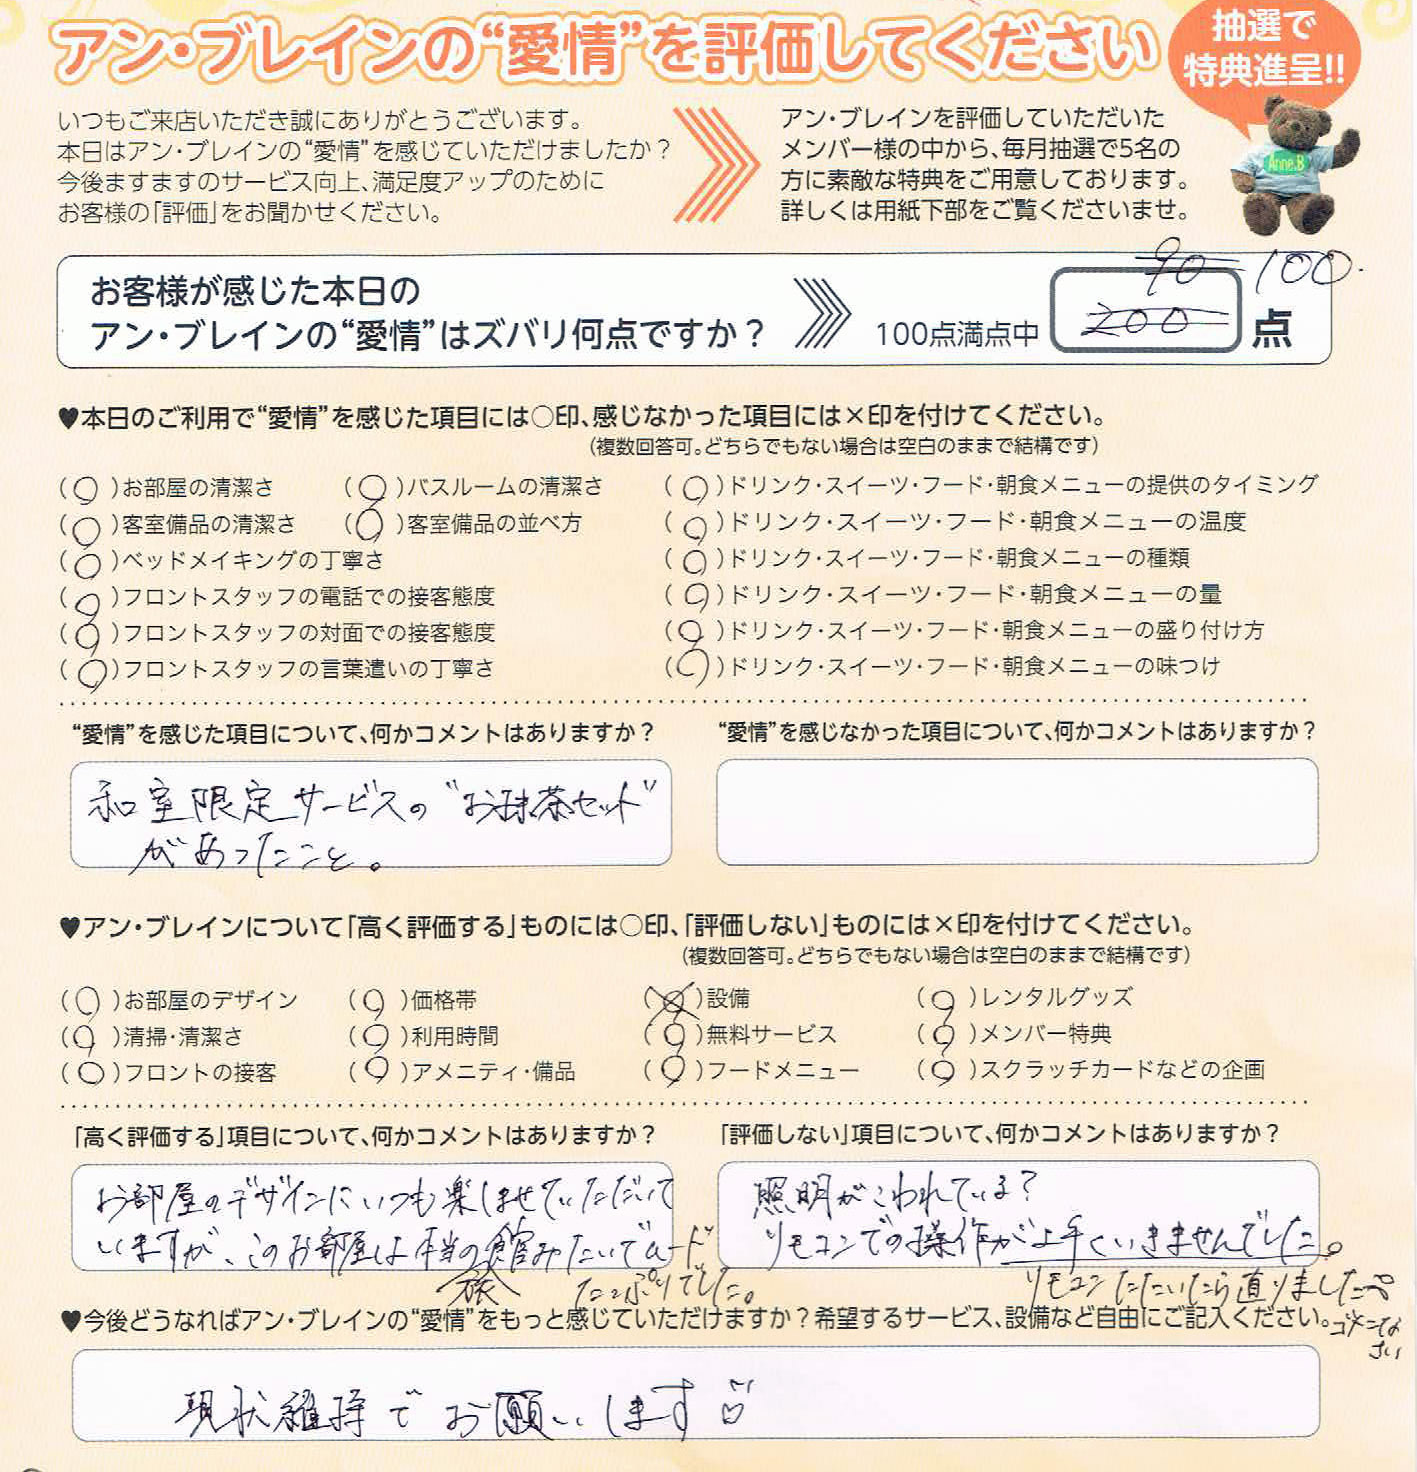 アン・ブレインの“愛情”を評価してください
抽選で
特典進呈!!
いつもご来店いただき誠にありがとうございます。
本日はアン・ブレインの“愛情”を感じていただけましたか？
今後ますますのサービス向上、満足度アップのために
お客様の「評価」をお聞かせください。
アン・ブレインを評価していただいた
メンバー様の中から、毎月抽選で5名の
方に素敵な特典をご用意しております。
詳しくは用紙下部をご覧くださいませ。
Anne.B
お客様が感じた本日の
アン・ブレインの“愛情”はズバリ何点ですか？
100点満点中
90 100.
200 点
♥本日のご利用で“愛情”を感じた項目には○印、感じなかった項目には×印を付けてください。
(複数回答可。どちらでもない場合は空白のままで結構です)
(○)お部屋の清潔さ (○)バスルームの清潔さ (○)ドリンク・スイーツ・フード・朝食メニューの提供のタイミング
(○)客室備品の清潔さ (○)客室備品の並べ方 (○)ドリンク・スイーツ・フード・朝食メニューの温度
(○)ベッドメイキングの丁寧さ (○)ドリンク・スイーツ・フード・朝食メニューの種類
(○)フロントスタッフの電話での接客態度 (○)ドリンク・スイーツ・フード・朝食メニューの量
(○)フロントスタッフの対面での接客態度 (○)ドリンク・スイーツ・フード・朝食メニューの盛り付け方
(○)フロントスタッフの言葉遣いの丁寧さ (○)ドリンク・スイーツ・フード・朝食メニューの味つけ
“愛情”を感じた項目について、何かコメントはありますか？
和室限定サービスの“お抹茶セット”
があったこと。
“愛情”を感じなかった項目について、何かコメントはありますか？
♥アン・ブレインについて「高く評価する」ものには○印、「評価しない」ものには×印を付けてください。
(複数回答可。どちらでもない場合は空白のままで結構です)
(○)お部屋のデザイン (○)価格帯 (×)設備 (○)レンタルグッズ
(○)清掃・清潔さ (○)利用時間 (○)無料サービス (○)メンバー特典
(○)フロントの接客 (○)アメニティ・備品 (○)フードメニュー (○)スクラッチカードなどの企画
「高く評価する」項目について、何かコメントはありますか？
お部屋のデザインにいつも楽しませていただいて
いますが、このお部屋は本当の旅館みたいでムード
たっぷりでした。
「評価しない」項目について、何かコメントはありますか？
照明がこわれている？
リモコンでの操作が上手くいきませんでした。
リモコンたたいたら直りました
ゴメンなさい
♥今後どうなればアン・ブレインの“愛情”をもっと感じていただけますか？希望するサービス、設備など自由にご記入ください。
現状維持でお願いします